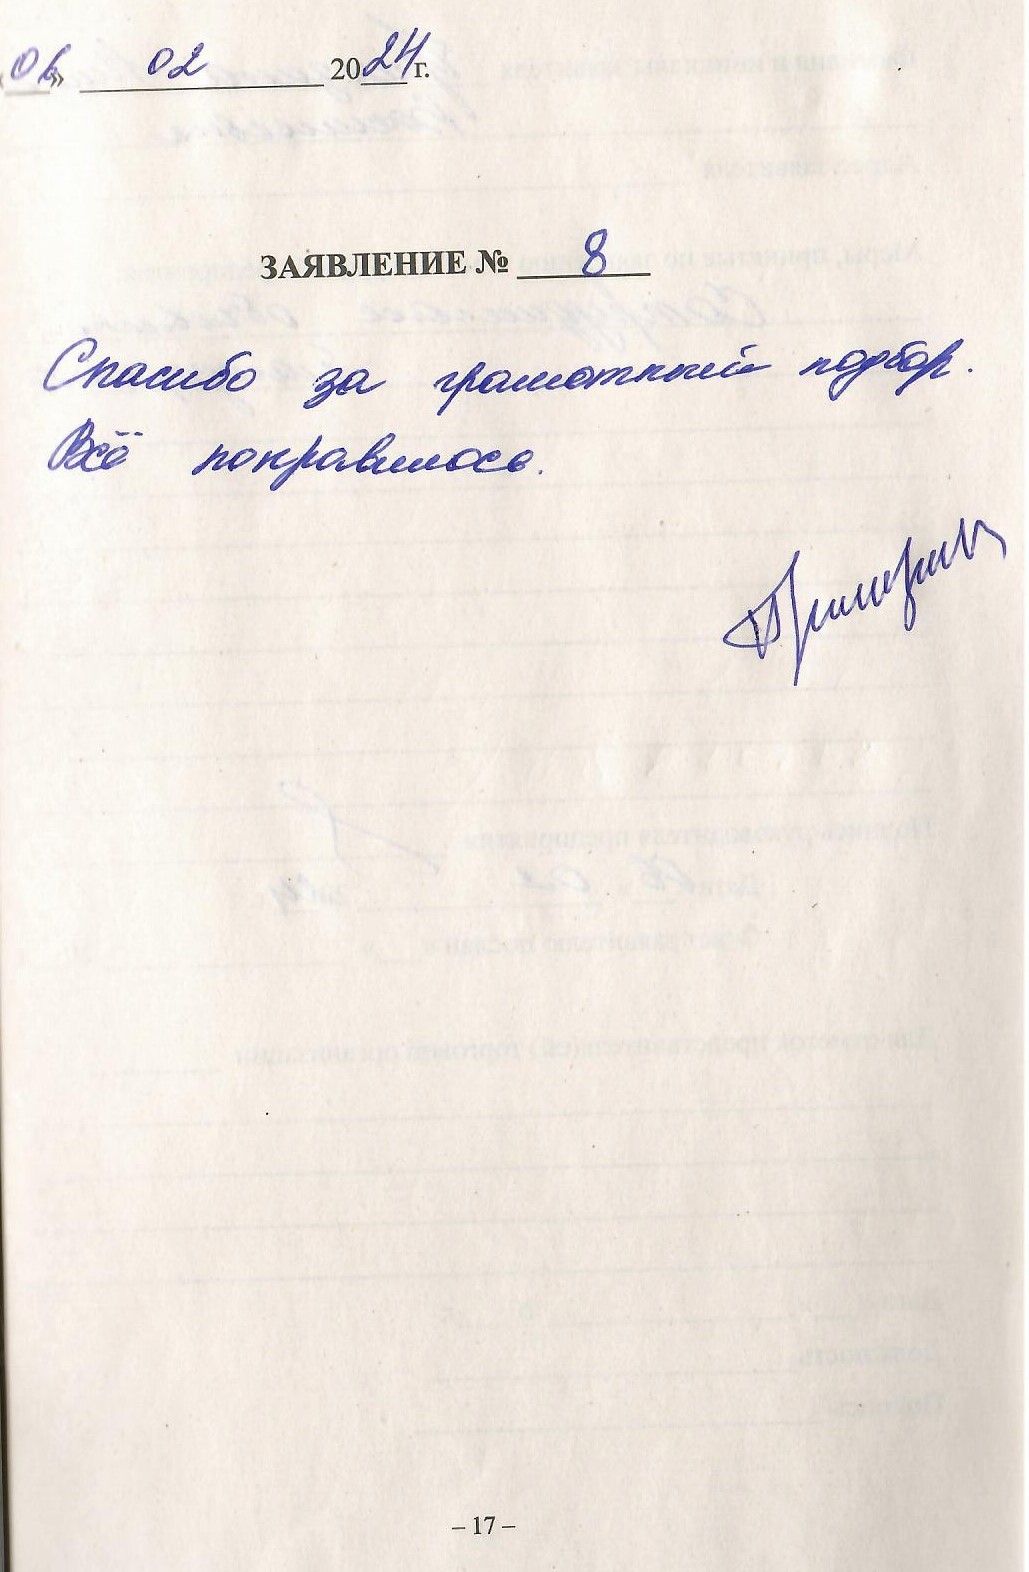 «06» 02 2024 г.
ЗАЯВЛЕНИЕ № 8
Спасибо за грамотный подбор.
Всё понравилось.
– 17 –